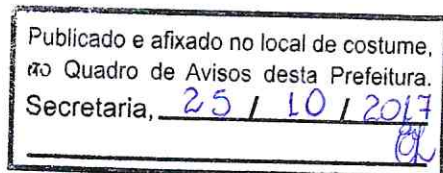 Publicado e afixado no local de costume,
no Quadro de Avisos desta Prefeitura.
Secretaria, 25 / 10 / 2017